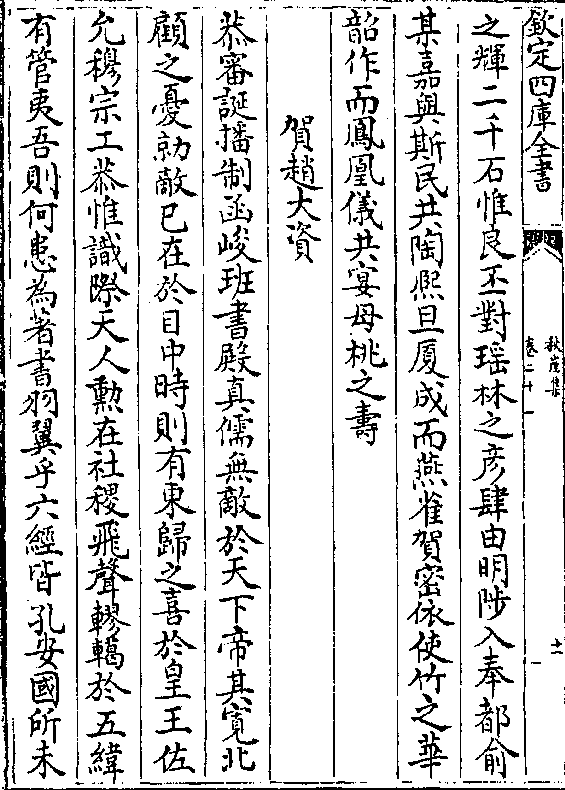 欽定四庫全書
秋崖集
卷二十一
十一
之輝二千石惟良丕對瑶林之彦肆由明陟入奉都俞
其嘉與斯民共陶熙旦厦成而燕雀賀密依使竹之華
韶作而鳳凰儀共宴母桃之壽
賀趙大資
恭審誕播制函峻班書殿真儒無敵於天下帝其寛北
顧之憂勍敵已在於目中時則有東歸之喜於皇王佐
允穆宗工恭惟識際天人勲在社稷飛聲轇轕於五緯
有管夷吾則何患為著書羽翼乎六經皆孔安國所未